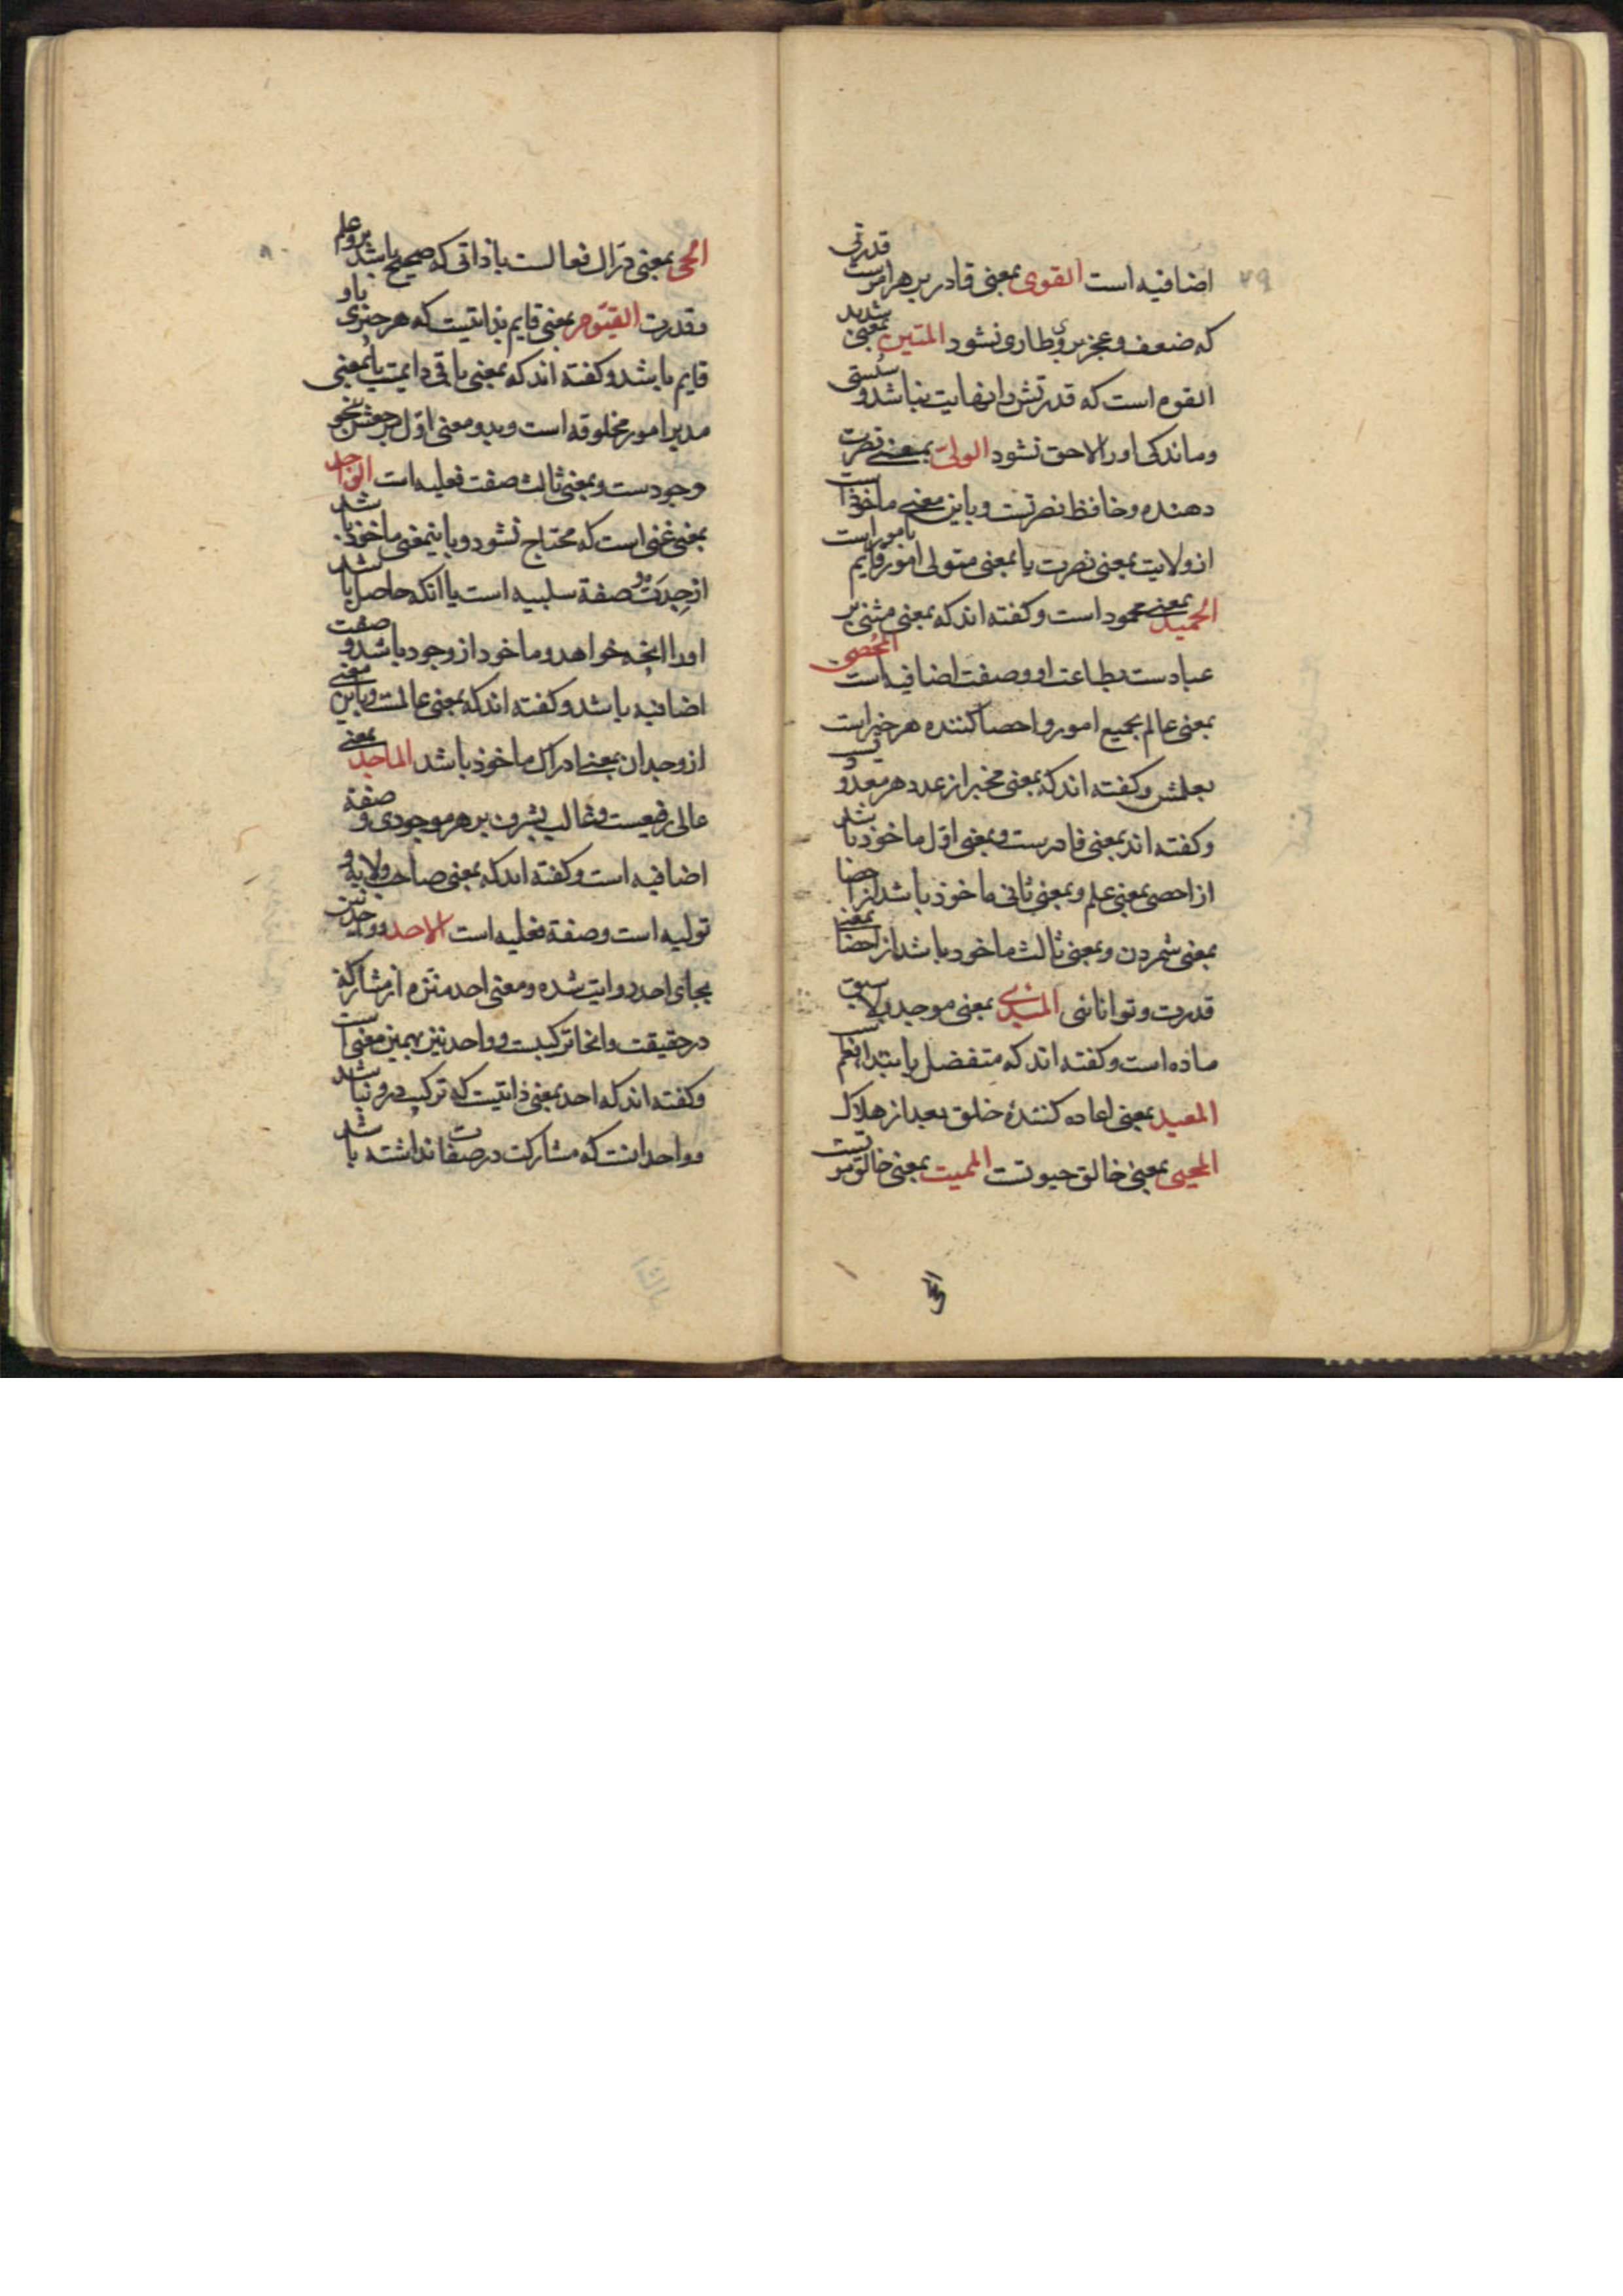 ۷۹
اضافیه است القوی بمعنی قادر بر هر امریست قدرتی
که ضعف و عجز بر وی طاری نشود المتین بمعنی شدید
القوه است که قدرتش را نهایت نباشد و سستی
و ماندکی اورا لاحق نشود الولی بمعنی نصرت
دهنده و حافظ نصرتست و باین معنی ماخوذ است
از ولایت بمعنی نصرت یا بمعنی متولی امور و قایم بامور است
الحمید بمعنی محمود است و کفته اند که بمعنی مثنی بر
عبادست بطاعت او و صفت اضافیه است المحصی
بمعنی عالم بجمیع امور و احصا کننده هر چیز است
بعلمش و کفته اند که بمعنی مخبر از عدد هر معدو
و کفته اند بمعنی قادرست و بمعنی اول ماخوذ باشد
از احصی بمعنی علم و بمعنی ثانی ماخوذ باشد از احصا
بمعنی شمردن و بمعنی ثالث ماخوذ باشد از احصا بمعنی
قدرت و توانائی المبدی بمعنی موجد بلا سبق
ماده است و کفته اند که متفضل بابتدا نعم
المعید بمعنی اعاده کنندهٔ خلق بعد از هلاک
المحیی بمعنی خالق حیوتست الممیت بمعنی خالق موتست
الحی
۸۰
الحی بمعنی درّاک فعالست یا ذاتی که صحیح باشد برو علم
و قدرت القیّوم بمعنی قایم بذاتیست که هر چیزی باو
قایم باشد و کفته اند که بمعنی باقی دایمست یا بمعنی
مدبر امور مخلوقه است و بدو معنی اول مرجعش بنحو
وجودست و بمعنی ثالث صفت فعلیه است الواجد
بمعنی غنی است که محتاج نشود و باینمعنی ماخوذ باشد
از جِدَت و صفة سلبیه است یا انکه حاصل باشد
اورا انچه خواهد و ماخوذ از وجود باشد و صفت
اضافیه باشد و کفته اند که بمعنی عالمست و باین معنی
از وجدان بمعنی ادراک ماخوذ باشد الماجد بمعنی
عالی رفیعست و غالب بشرف بر هر موجودی و صفة
اضافیه است و کفته اند که بمعنی صاحب ولایة و
تولیه است و صفة فعلیه است الاحد و واحد نیز
بجای احد روایت شده و معنی احد منزه از مشارکة
در حقیقت و انحا ترکیبست و واحد نیز بهمین معنی است
و کفته اند که احد بمعنی ذاتیست که ترکیب درو نباشد
و واحد انست که مشارکت در صفات نداشته باشد